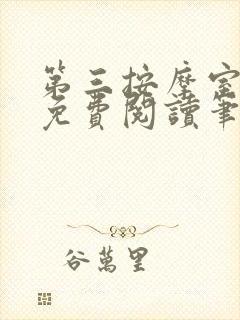 第三按摩室
免費閱讀筆
谷萬里